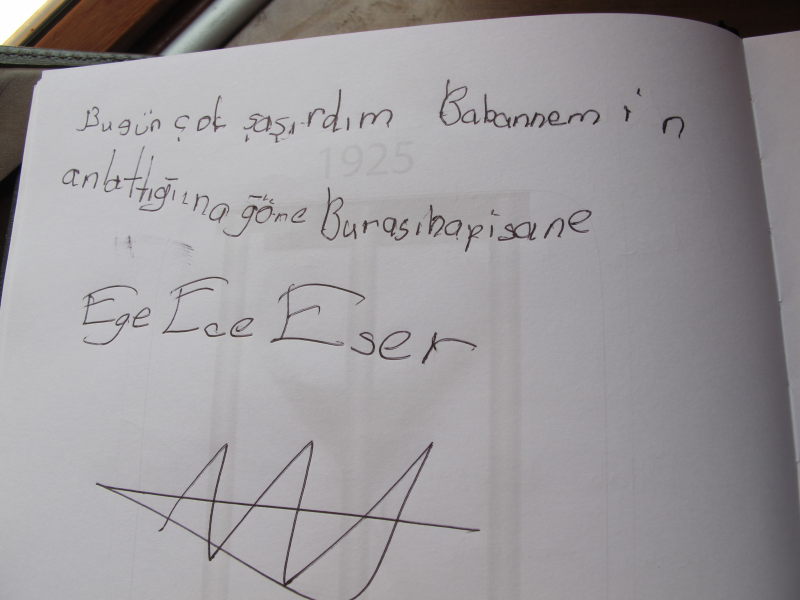 Bugün çok şaşırdım Babannem in
1925
anlattığına göre Burasıhapisane
Ege Ece Eser